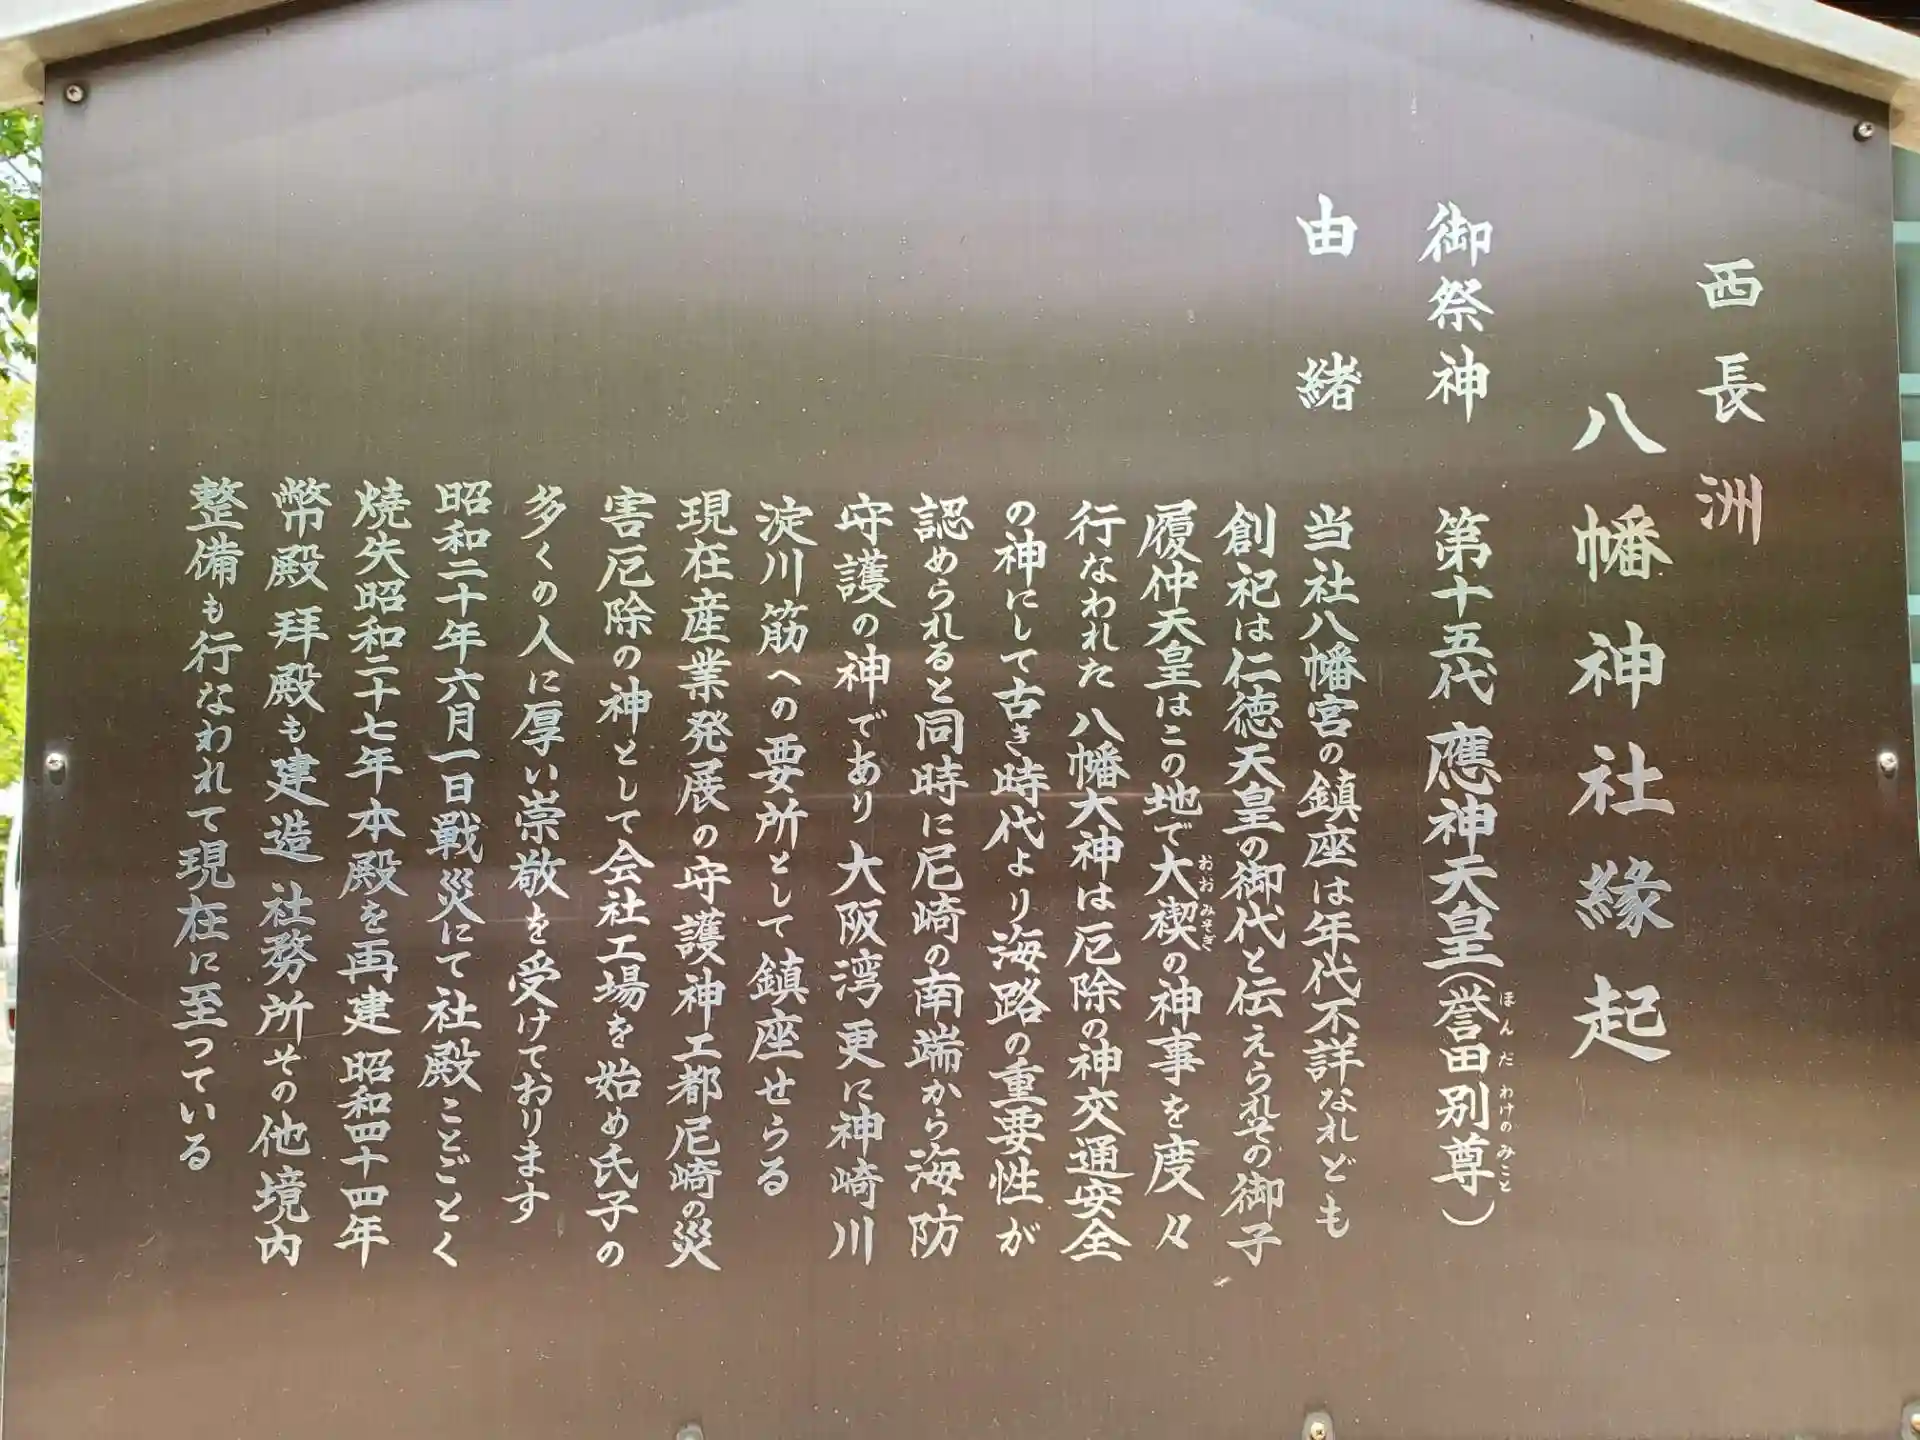 西長洲
八幡神社縁起
御祭神　第十五代　應神天皇（誉田別尊）
ほんだわけのみこと
由緒　当社八幡宮の鎮座は年代不詳なれども
創祀は仁徳天皇の御代と伝えられその御子
履仲天皇はこの地で大禊の神事を度々
おおみそぎ
行なわれた　八幡大神は厄除の神交通安全
の神にして古き時代より海路の重要性が
認められると同時に尼崎の南端から海防
守護の神であり　大阪湾更に神崎川
淀川筋への要所として鎮座せらる
現在産業発展の守護神工都尼崎の災
害厄除の神として会社工場を始め氏子の
多くの人に厚い崇敬を受けております
昭和二十年六月一日戦災にて社殿ことごとく
焼失昭和二十七年本殿を再建　昭和四十四年
幣殿　拝殿も建造　社務所その他境内
整備も行なわれて現在に至っている